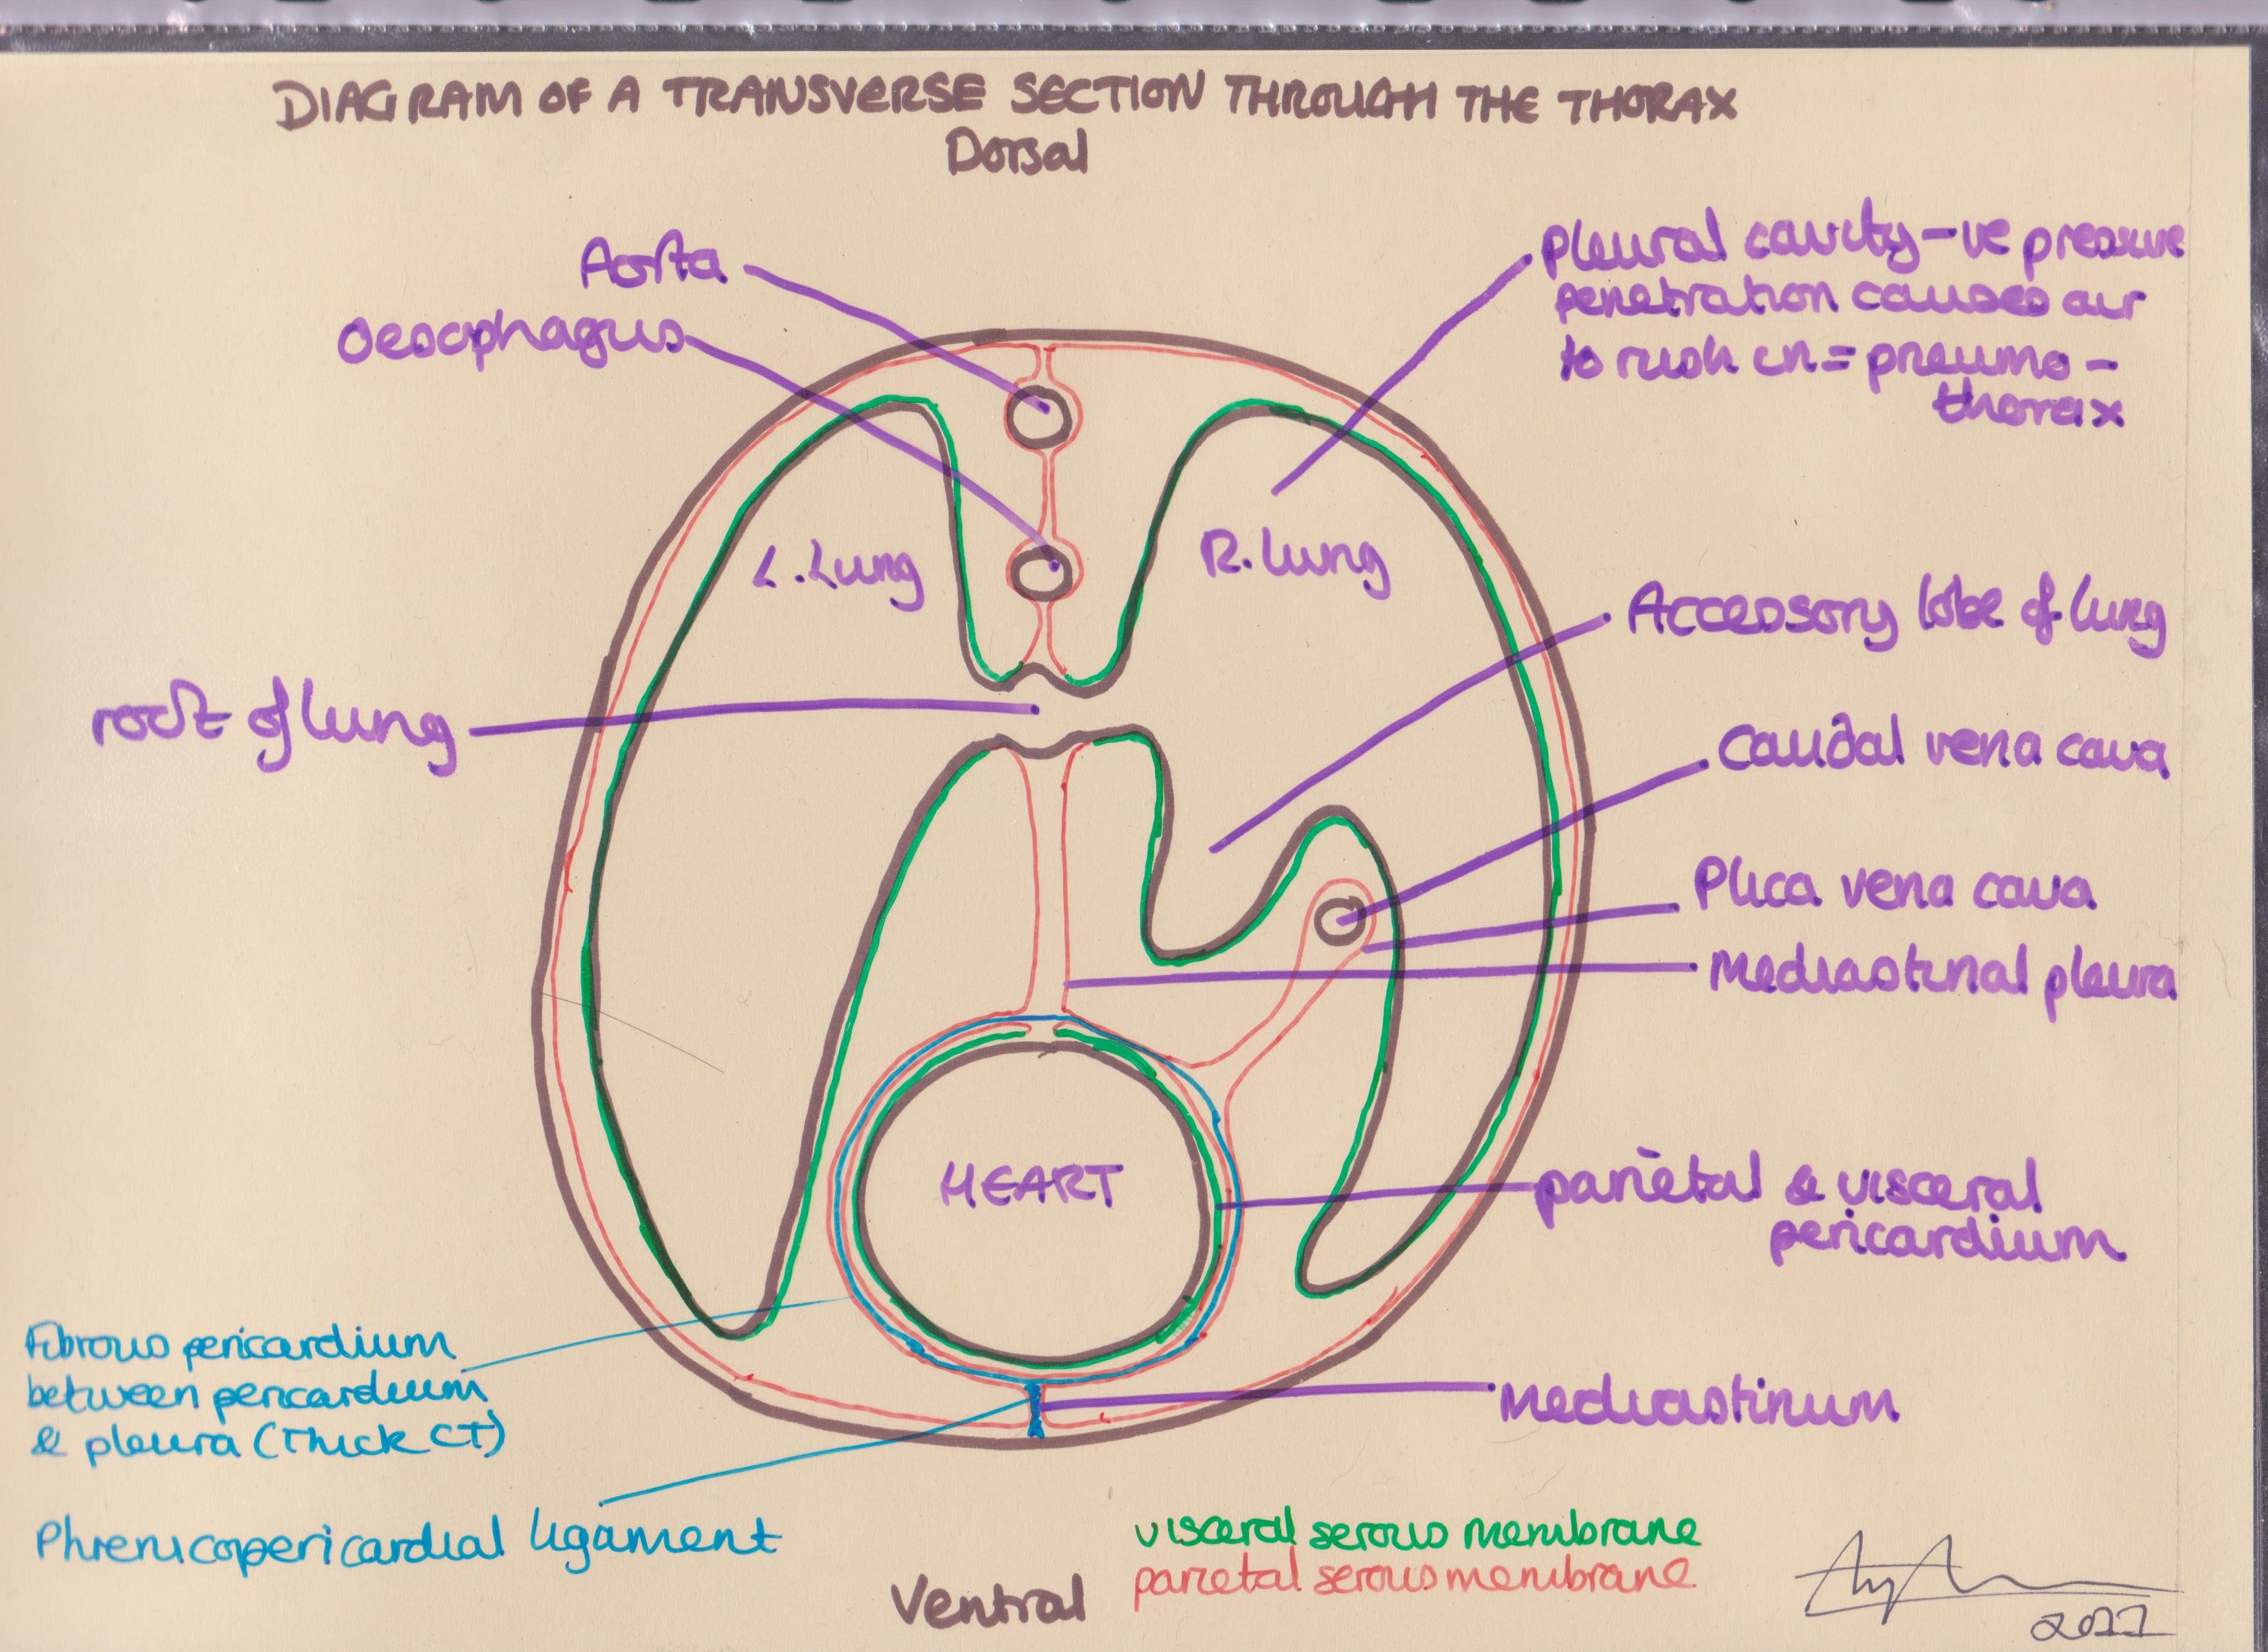 DIAGRAM OF A TRANSVERSE SECTION THROUGH THE THORAX
Dorsal
Aorta
Oesophagus
Pleural cavity -ve pressure
penetration causes air
to rush in = pneumo -
thorax
L. Lung
R. Lung
Accessory lobe of lung
root of lung
Caudal vena cava
Plica vena cava
Mediastinal pleura
HEART
parietal & visceral
pericardium
Fibrous pericardium
between pericardium
& pleura (Thick CT)
Mediastinum
Phrenicopericardial ligament
visceral serous membrane
parietal serous membrane
Ventral